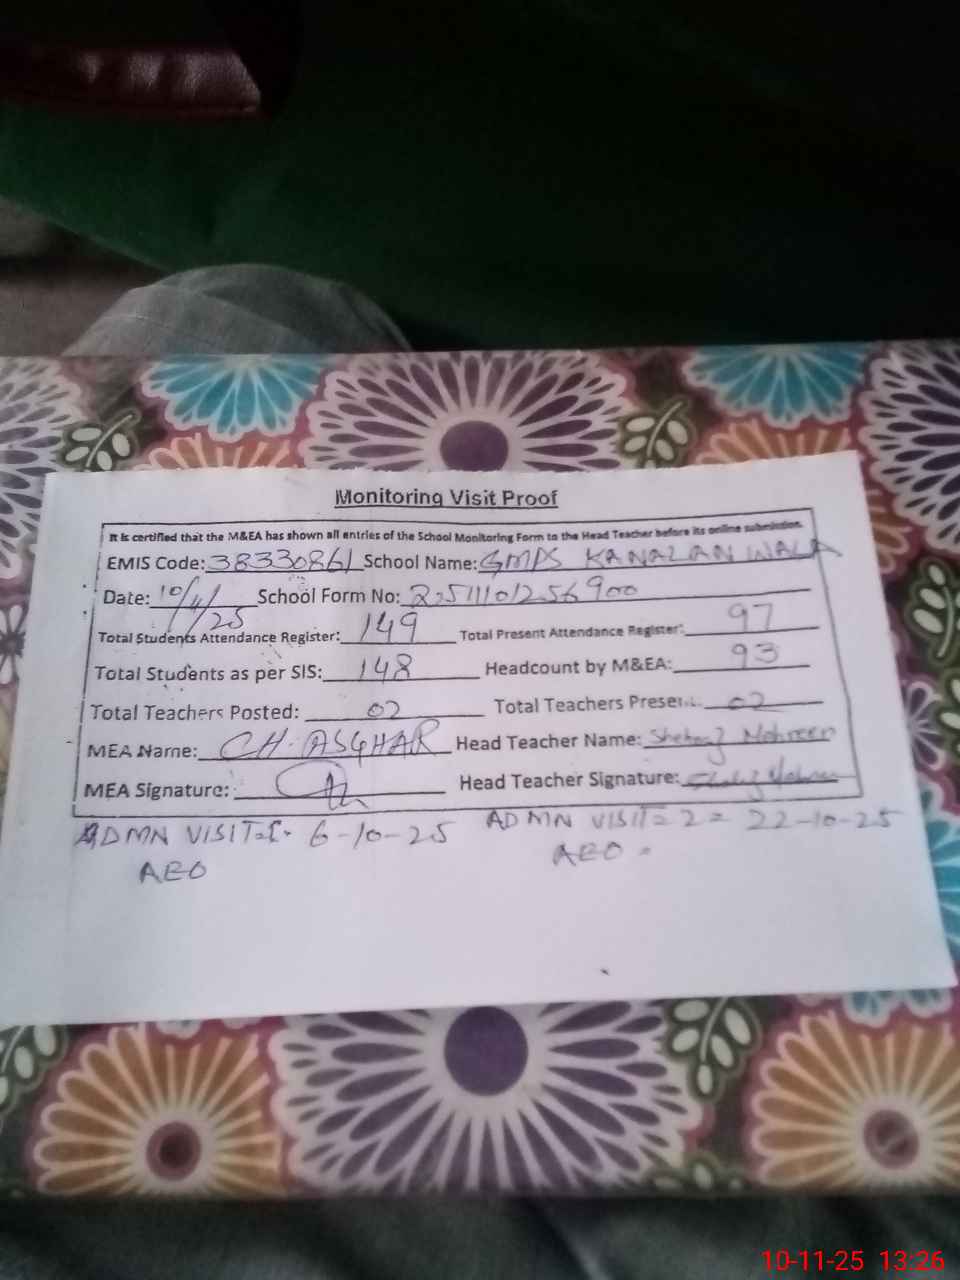 Monitoring Visit Proof
It is certified that the M&EA has shown all entries of the School Monitoring Form to the Head Teacher before its online submission.
EMIS Code: 38330861 School Name: GMPS KANALAN WALA
Date: 10/11/25 School Form No: 2511101256900
Total Students Attendance Register: 149 Total Present Attendance Register: 97
Total Students as per SIS: 148 Headcount by M&EA: 93
Total Teachers Posted: 02 Total Teachers Present: 02
MEA Name: CH. ASGHAR Head Teacher Name: Shehnaz Nohreen
MEA Signature: Head Teacher Signature:
ADMN VISIT= 6-10-25 ADMN VISIT= 2= 22-10-25
AEO AEO =
10-11-25 13:26